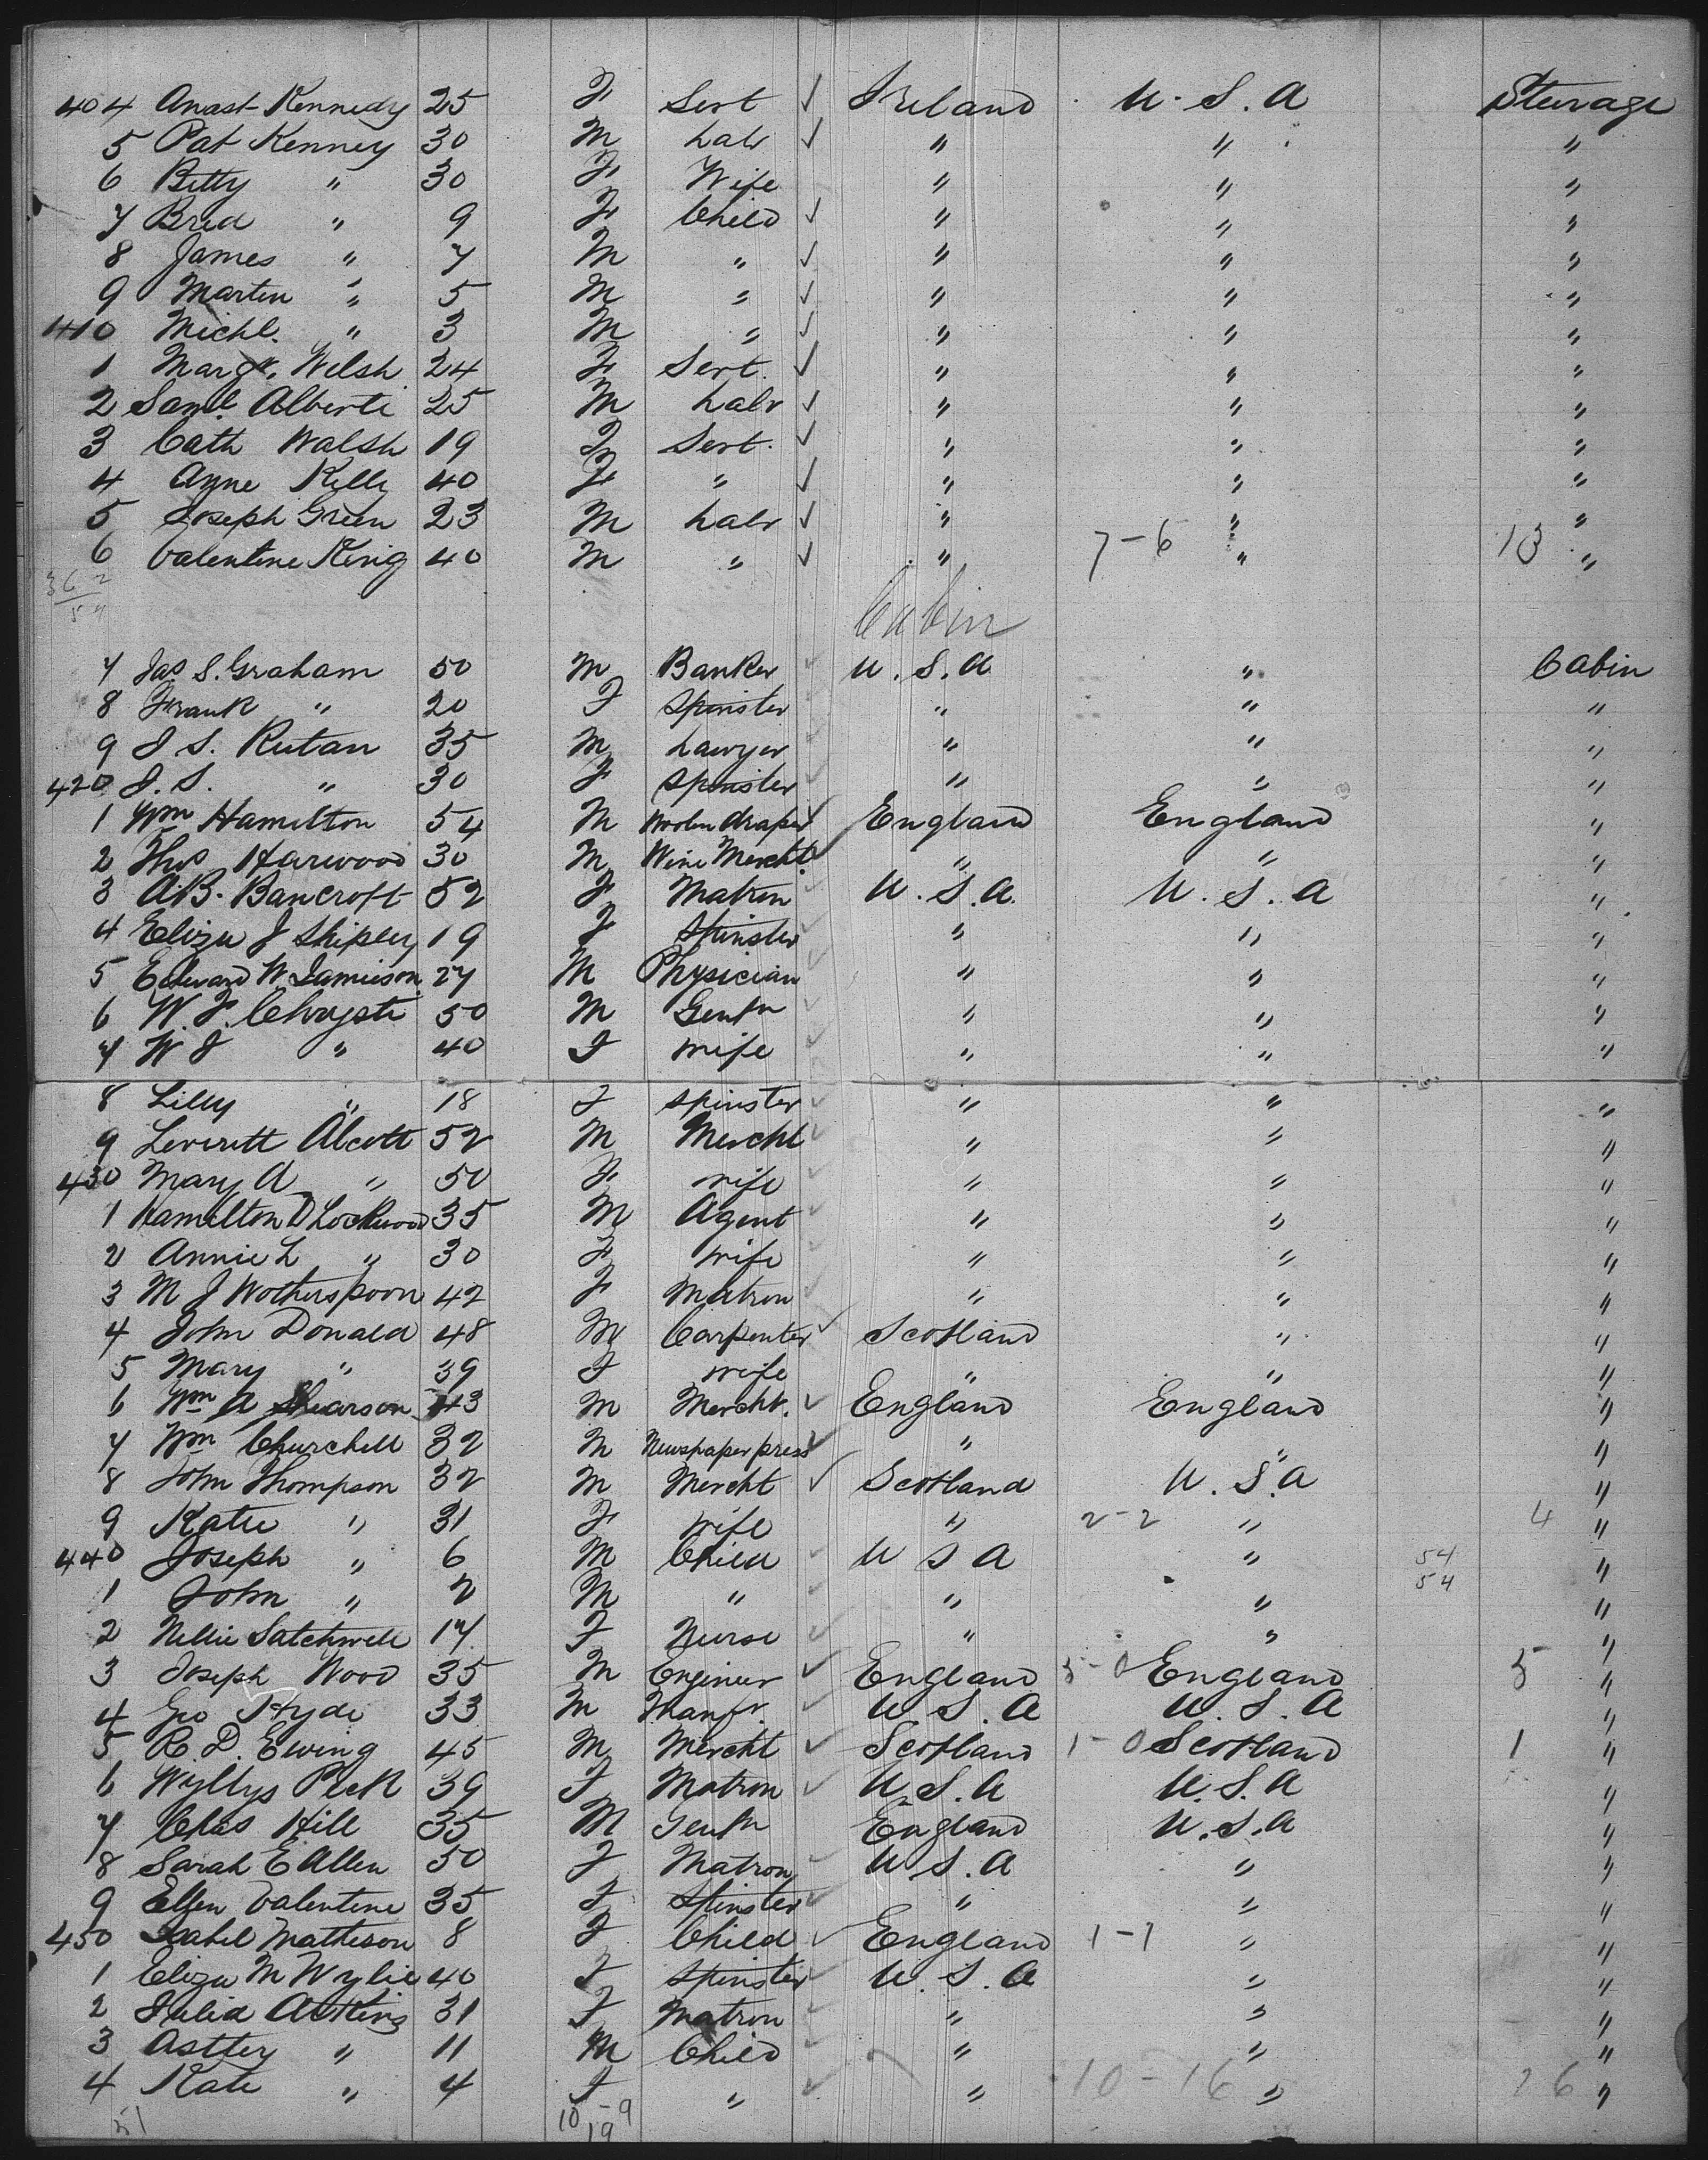 404 Anast Kennedy 25 F Servt ✓ Ireland U.S.A Steerage
5 Pat Kenney 30 M Labr ✓ " " "
6 Betty " 30 F Wife " " "
7 Brid " 9 F Child ✓ " " "
8 James " 7 M " ✓ " " "
9 Martin " 5 M " ✓ " " "
410 Michl. " 3 M " ✓ " " "
1 Margt. Welsh 24 F Servt. ✓ " " "
2 Saml. Alberti 25 M Labr ✓ " " "
3 Cath Walsh 19 F Servt. ✓ " " "
4 Anne Kelly 40 F " ✓ " " "
5 Joseph Green 23 M Labr ✓ " " "
6 Valentine King 40 M " ✓ " 7-6 " 13 "
Cabin
7 Jas S. Graham 50 M Banker ✓ U.S.A " Cabin
8 Frank " 20 F Spinster " " "
9 J S. Rutan 35 M Lawyer ✓ " " "
420 J. S. " 30 F Spinster ✓ " " "
1 Wm Hamilton 54 M Woolen draper ✓ England England "
2 Thos Harwood 30 M Wine Mercht. ✓ " " "
3 A.B. Bancroft 52 F Matron ✓ U.S.A. U.S.A "
4 Eliza J Shipley 19 F Spinster ✓ " " "
5 Edward W. Jamieson 27 M Physician ✓ " " "
6 W. F. 50 M Gentn ✓ " " "
7 W F " 40 F Wife ✓ " " "
8 Lilly " 18 F Spinster ✓ " " "
9 Leverett Alcott 52 M Mercht ✓ " " "
430 Mary A " 50 F Wife ✓ " " "
1 Hamilton D Lockwood 35 M Agent ✓ " " "
2 Annie L " 30 F Wife ✓ " " "
3 M J Wotherspoon 42 F Matron ✓ " " "
4 John Donald 48 M Carpenter ✓ Scotland " "
5 Mary " 39 F Wife " " "
6 Wm A Shearson 43 M Mercht. ✓ England England "
7 Wm Churchill 32 M Newspaper press ✓ " " "
8 John Thompson 32 M Mercht ✓ Scotland U.S.A "
9 Katie " 31 F Wife " 2-2 " 4 "
440 Joseph " 6 M Child ✓ U S A " 54 "
1 John " 2 M " ✓ " " 54 "
2 Nellie Satchwell 17 F Nurse ✓ " " "
3 Joseph Wood 35 M Engineer ✓ England 5-0 England 5 "
4 Geo Hyde 33 M Manfr. ✓ U.S.A U.S.A "
5 R. D. Ewing 45 M Mercht ✓ Scotland 1-0 Scotland 1 "
6 Wyllys Peck 39 F Matron ✓ U.S.A U.S.A "
7 Chas Hill 35 M Gentn England U.S.A "
8 Sarah E Allen 50 F Matron ✓ U S.A " "
9 Ellen Valentine 35 F Spinster ✓ " " "
450 Isabel Matheson 8 F Child ✓ England 1-1 " "
1 Eliza M Wylie 40 F Spinster ✓ U.S.A " "
2 Julia Askins 31 F Matron ✓ " " "
3 " 11 M Child ✓ " " "
4 Kate " 4 F " ✓ " 10-16 " 26 "
51 10-9
19